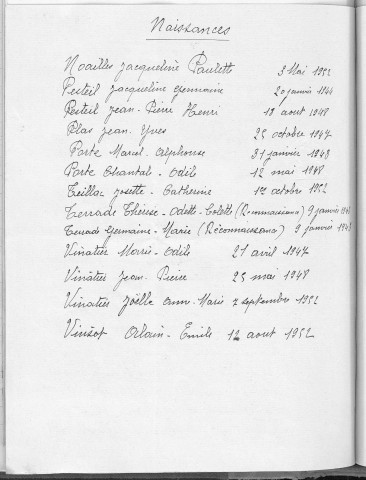 Naissances
Noailles Jacqueline Paulette 3 Mai 1952
Pesteil Jacqueline Germaine 20 janvier 1944
Pesteil Jean-Pierre Henri 18 aout 1948
Plas Jean. Yves 25 octobre 1947
Porte Marcel. Alphonse 31 janvier 1948
Porte Chantal-Odile 12 mai 1948
Teillac Josette-Catherine 1er octobre 1952
Terrade Thérèse-Odette-Colette (Reconnaissance) 9 janvier 1948
Terrade Germaine-Marie (Réconnaissance) 9 janvier 1948
Vinatier Marie-Odile 21 avril 1947
Vinatier Jean. Pierre 25 mai 1948
Vinatier Joëlle Anne. Marie 7 septembre 1952
Vinzot Alain-Emile 12 aout 1952